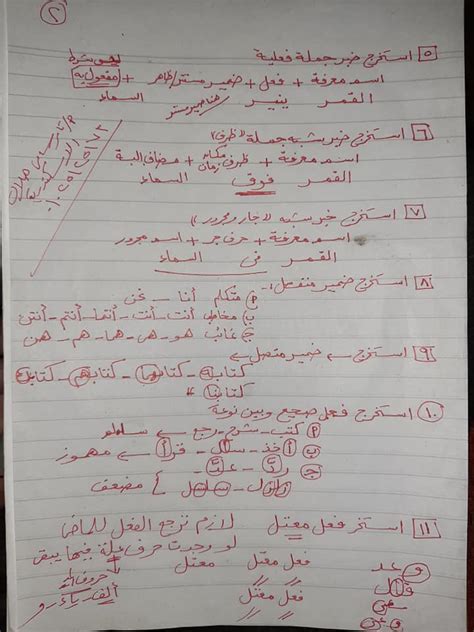 ٢
٥ استخرج خبر جملة فعلية
ليس شرط
اسم معرفة + فعل + ضمير مستتر/ظاهر + مفعول به
القمر ينير هنا ضمير مستتر السماء
٦ استخرج خبر شبه جملة "ظرف"
اسم معرفة + ظرف مكان زمان + مضاف إليه
القمر فوق السماء
٧ استخرج خبر شبه "جار ومجرور"
اسم معرفة + حرف جر + اسم مجرور
القمر فى السماء
٨ استخرج ضمير منفصل:-
متكلم أنا - نحن
مخاطب أنت - أنت - أنتما - أنتم - أنتن
غائب هو - هى - هما - هم - هن
٩ استخرج ضمير متصل
كتابه - كتابها - كتابهم - كتابك
كتابنا
١٠ استخرج فعل صحيح وبين نوعة
كتب - شرح - رجع سالم
أخذ - سأل - قرأ مهموز
ردّ - عدّ
زلزل - سلسل مضعف
١١ استخر فعل معتل لازم ترجع الفعل للماضى
لو وجدت حرف علة فيها يبقى
وعد فعل معتل معتل
حروف العلة
قال فعل معتل ألف - ياء - و